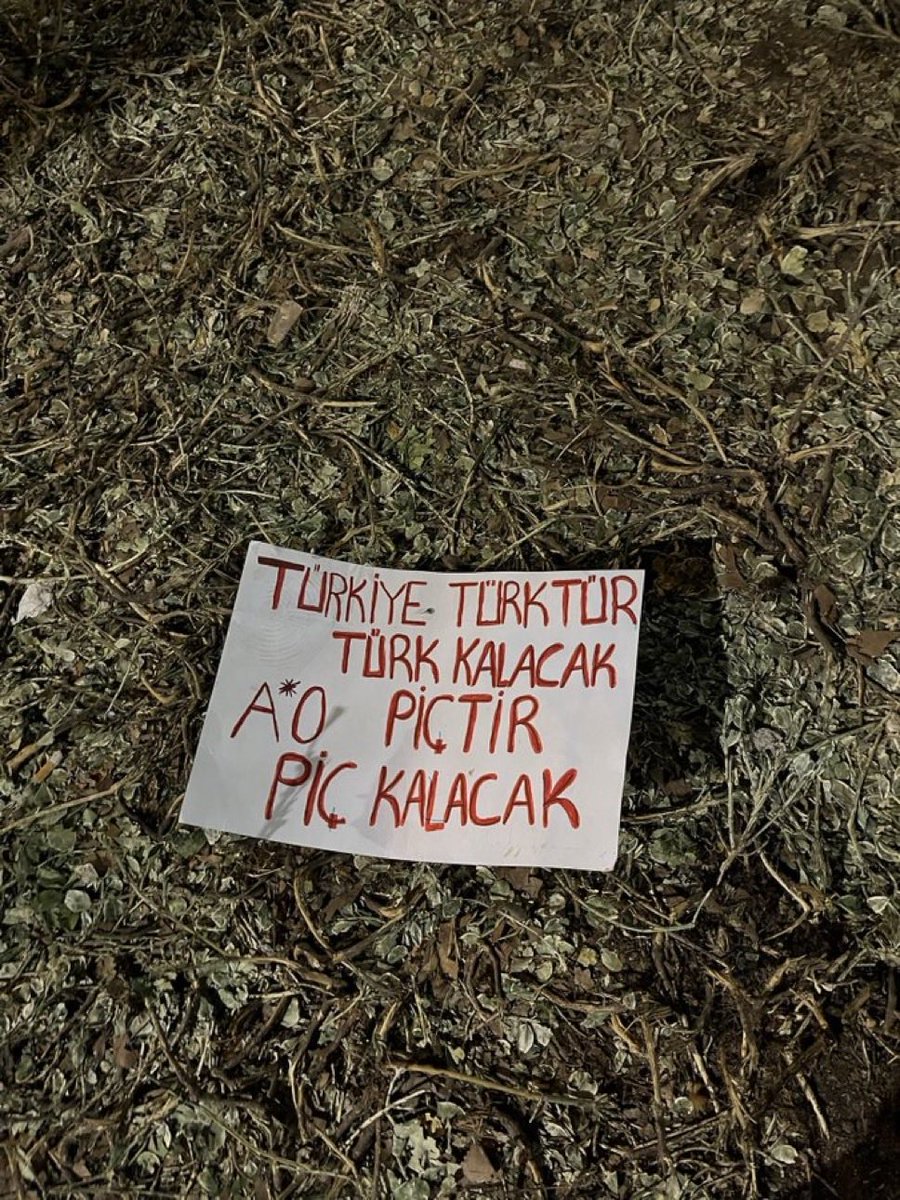 TÜRKİYE TÜRKTÜR
TÜRK KALACAK
A*Ö PİÇTİR
PİÇ KALACAK